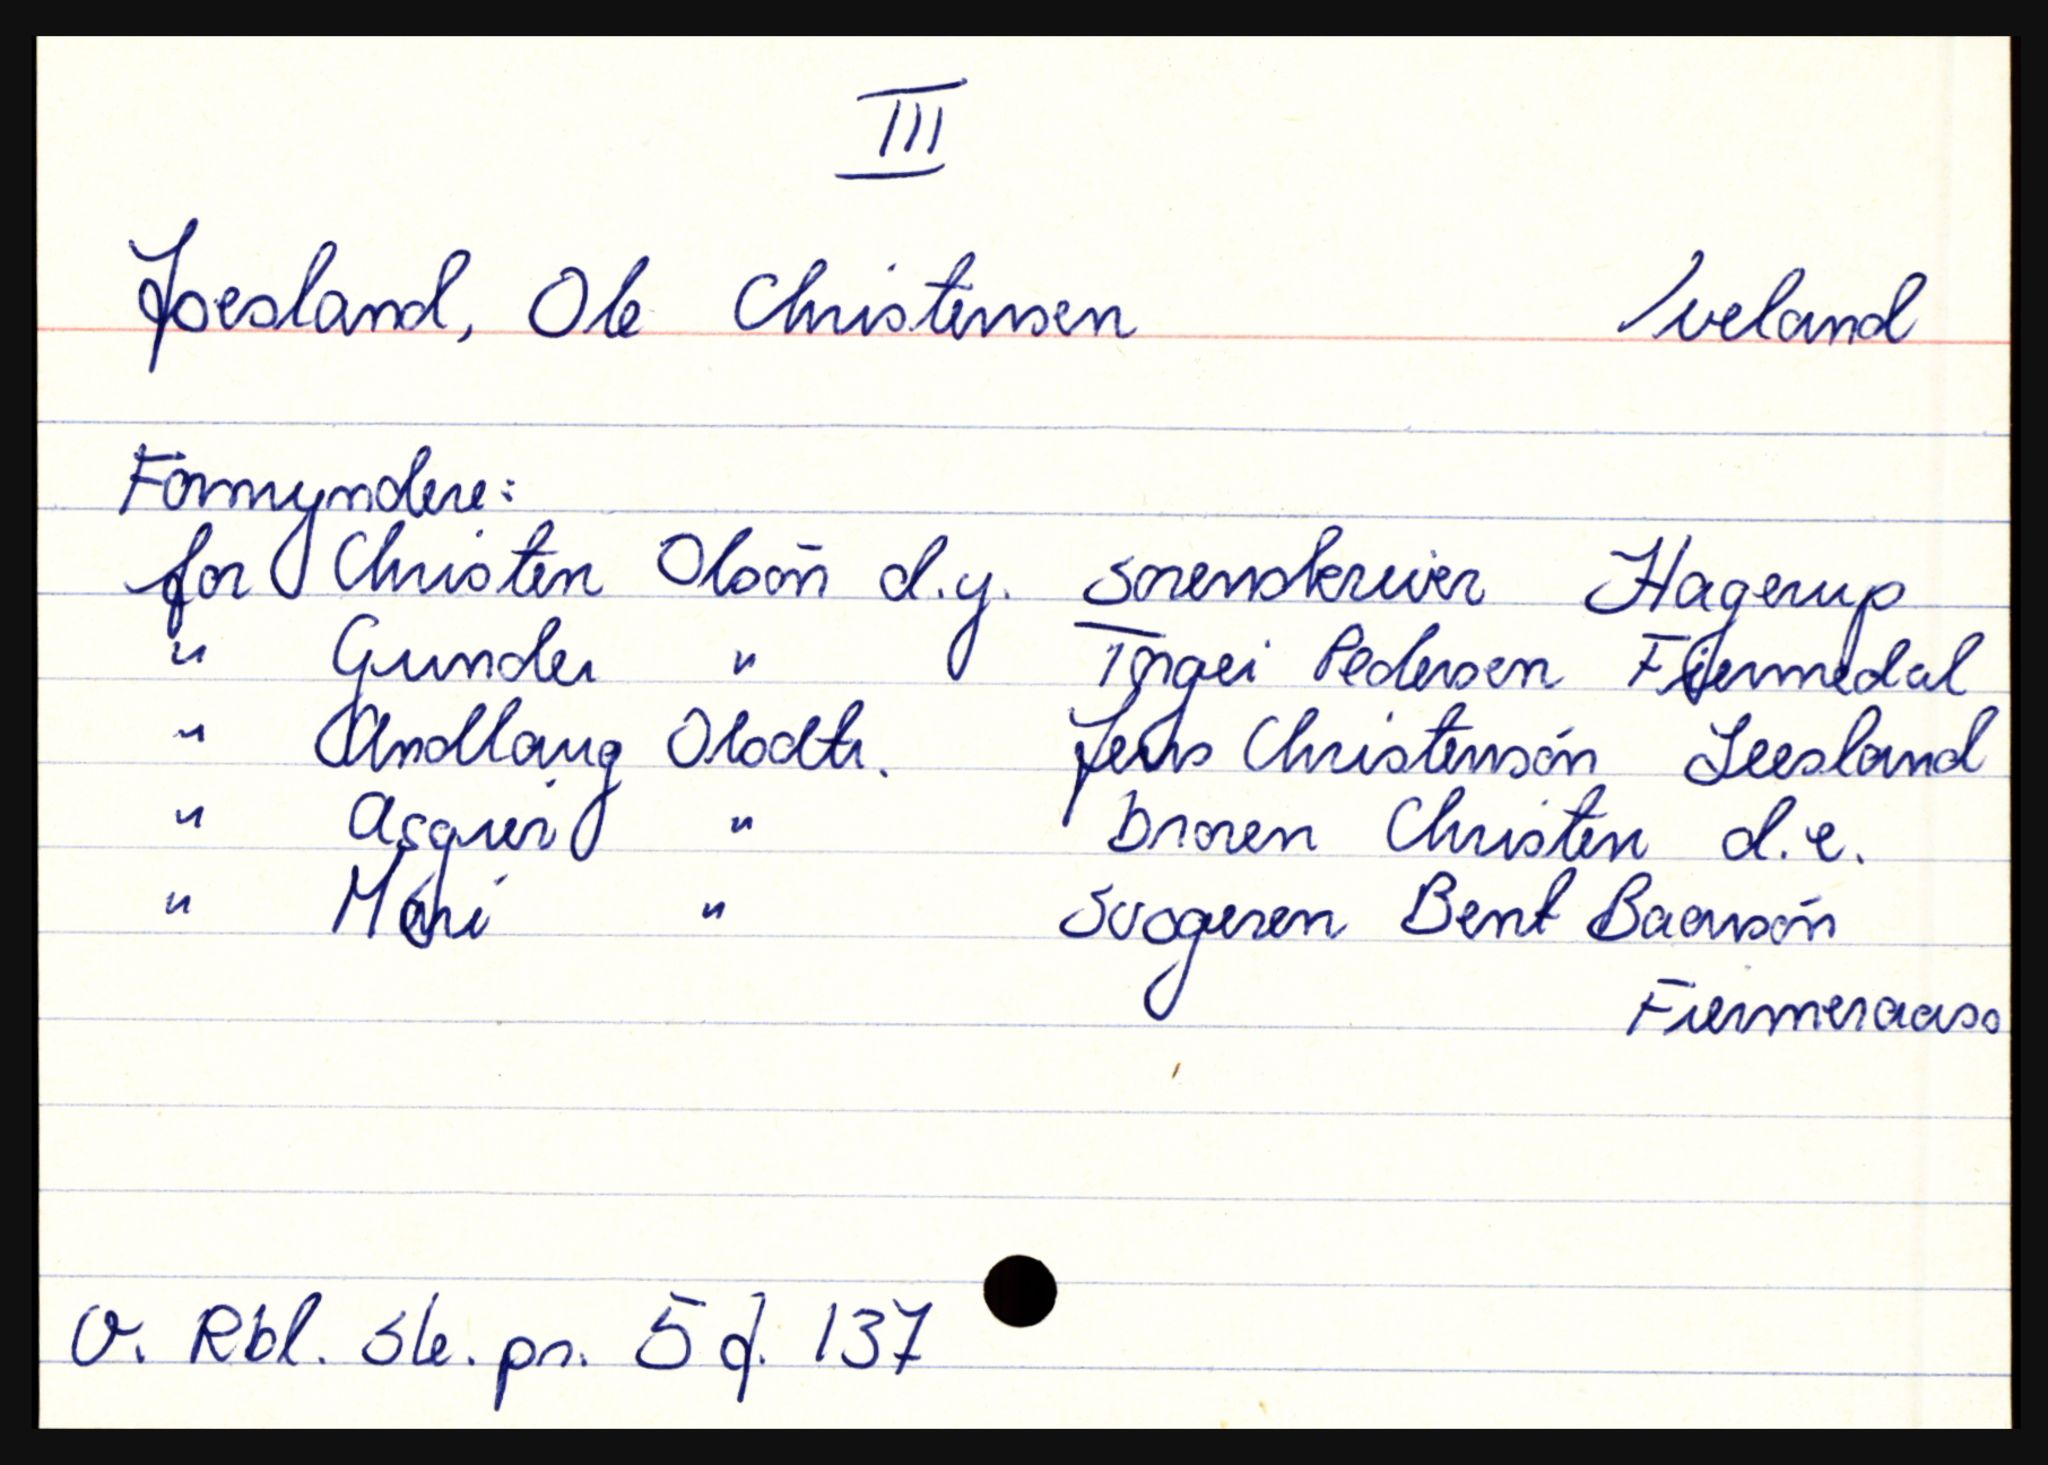 III
Joesland, Ole Christensen Iveland
Formyndere:
for Christen Olsøn d.y. sorenskriver Hagerup
" Gunder " Torgei Pedersen Fiermedal
" Andlaug Olsdtr. Jens Christensøn Leesland
" Asgier " broren Christen d.e.
" Mari " svogeren Bent Baarsøn
Fiermeraas
V. Rbl. ske. pr. 5 f. 137